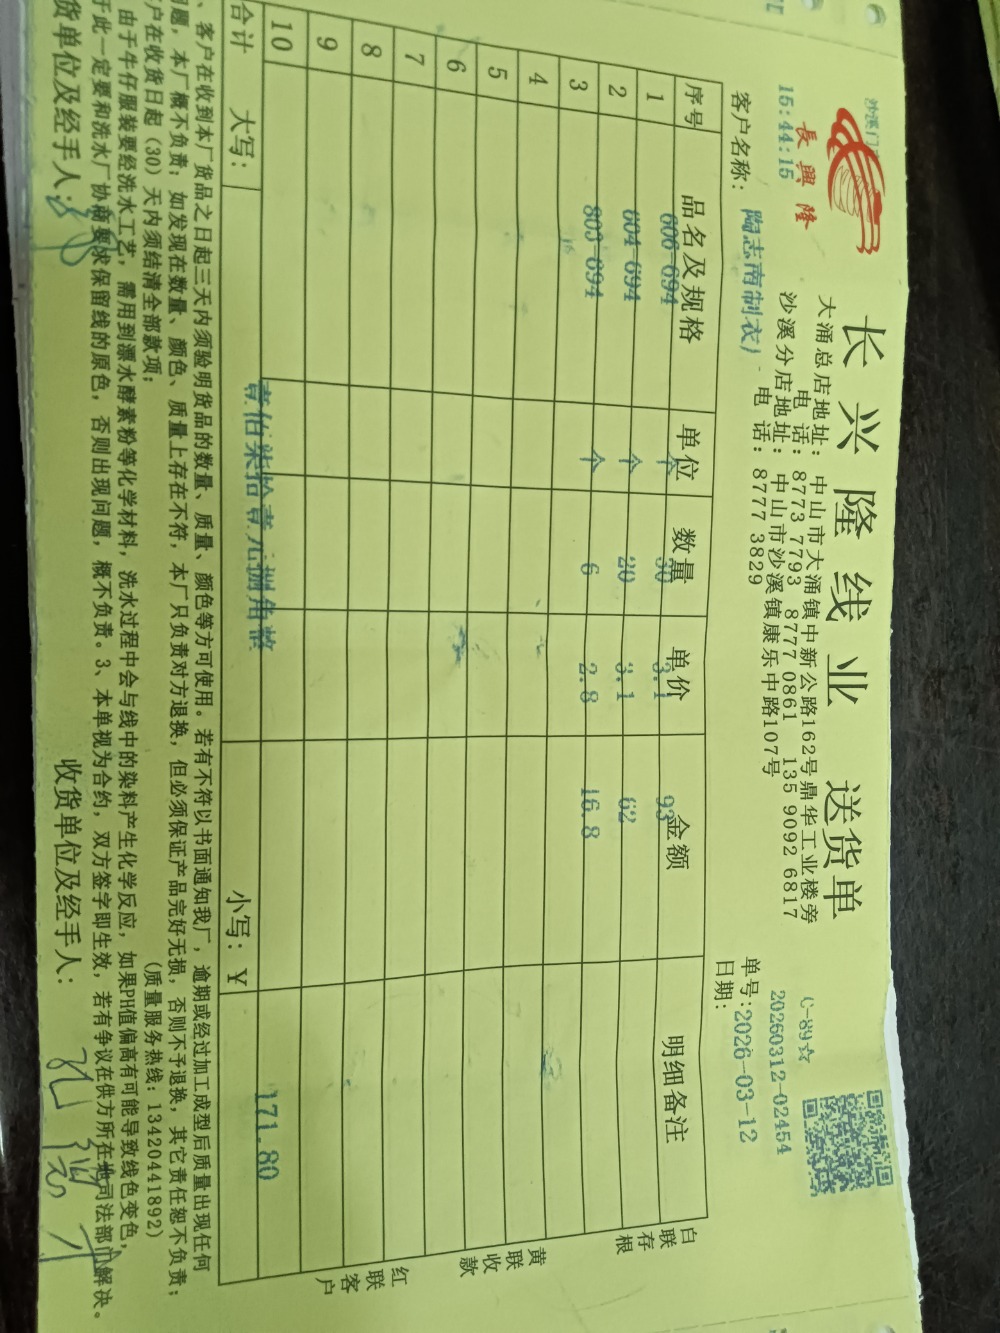 長興隆
长兴隆线业 送货单
大涌总店地址: 中山市大涌镇中新公路162号鼎华工业楼旁
电 话: 8773 7793 8777 0861 135 9092 6817
沙溪分店地址: 中山市沙溪镇康乐中路107号
电 话: 8777 3829
沙溪门
15:44:15
C-89☆
20260312-02454
单号:
日期: 2026-03-12
客户名称: 陶志南制衣厂
序号 品名及规格 单位 数量 单价 金额 明细备注
1 606-694 个 30 3.1 93
2 604-694 个 20 3.1 62
3 803-694 个 6 2.8 16.8
4
5
6
7
8
9
10
合计 大写: 壹佰柒拾壹元捌角整 小写: ¥ 171.80
白联存根
黄联收款
红联客户
、客户在收到本厂货品之日起三天内须验明货品的数量、质量、颜色等方可使用。若有不符以书面通知我厂,逾期或经过加工成型后质量出现任何
问题,本厂概不负责;如发现在数量、颜色、质量上存在不符,本厂只负责对方退换,但必须保证产品完好无损,否则不予退换,其它责任恕不负责;
户在收货日起(30)天内须结清全部款项; (质量服务热线:13420441892)
由于牛仔服装要经洗水工艺,需用到漂水酵素粉等化学材料,洗水过程中会与线中的染料产生化学反应,如果PH值偏高有可能导致线色变色,
于此一定要和洗水厂协商要求保留线的原色,否则出现问题,概不负责。3、本单视为合约,双方签字即生效,若有争议在供方所在地司法部门解决。
货单位及经手人: 收货单位及经手人: